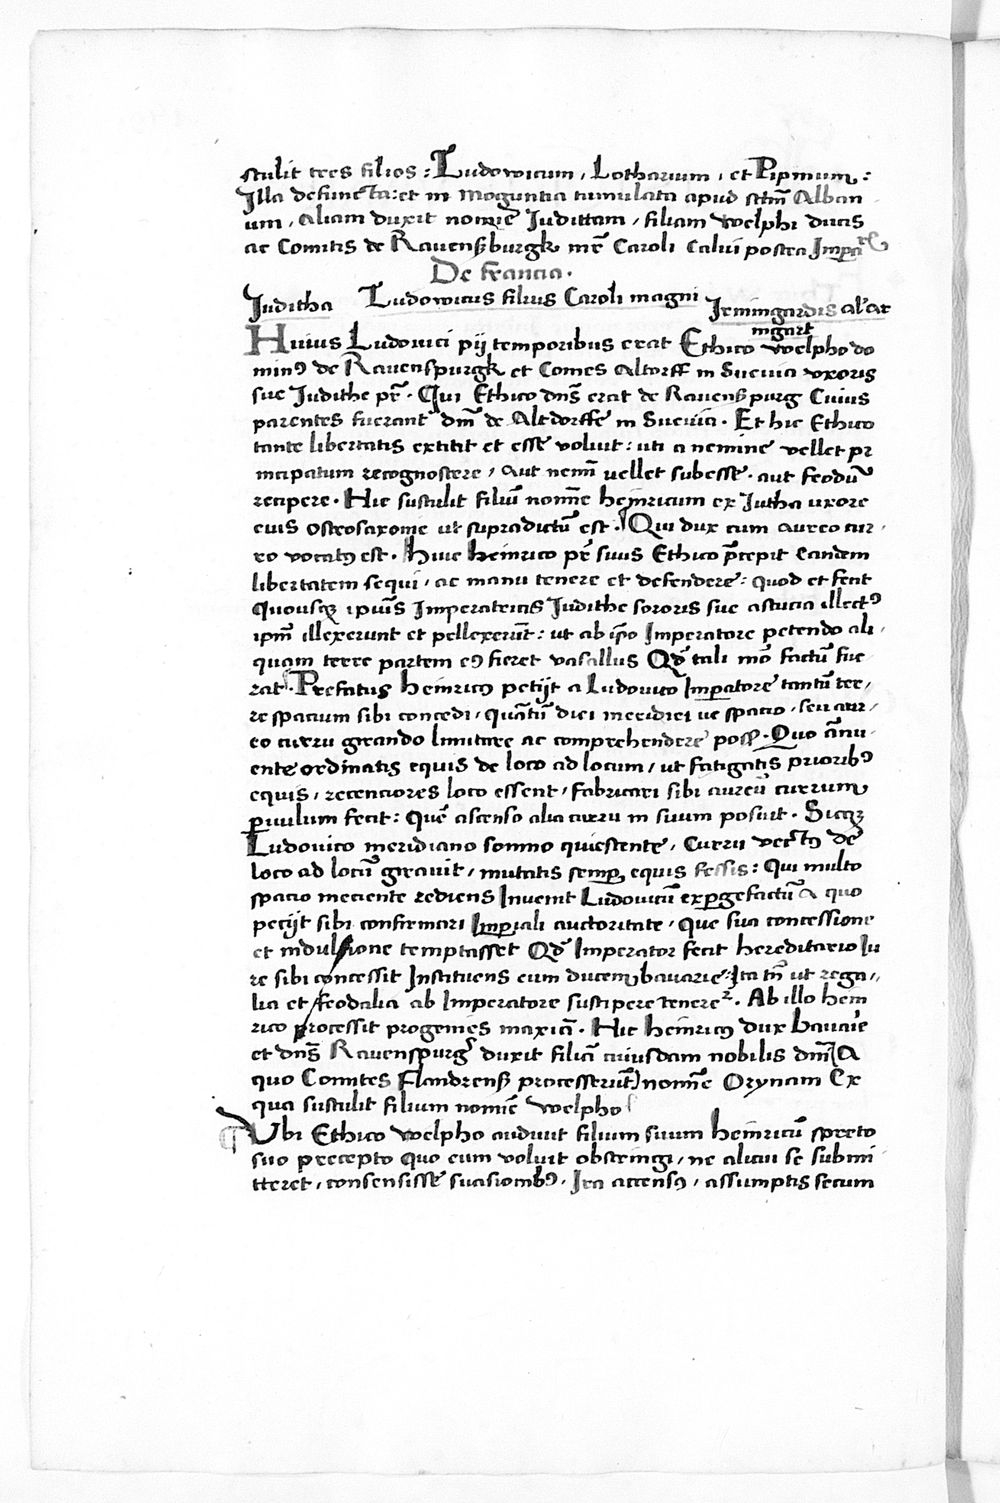 stulit tres filios : Ludowicum , Lotharium , et Pipinum :
Illa defuncta : et in Moguntia tumulata apud sctm̄ Alban
um , aliam duxit nomīe Judittam , filiam Welphi ducis
ac Comitis de Ravensburgk mr̄e Caroli Calvi postea Imp̄at
De francia .
Juditha Ludowicus filius Caroli magni Irmingardis al's ar
mgart
Huius Ludovici pij temporibus erat Ethico welpho do
minꝰ de Ravenspurgk et Comes Altorff in Suevia vxoris
sue Judithe pr̄ . Qui Ethico dn̄s erat de Ravenspurg Cuius
parentes fuerant dn̄i de Altdorffe in Suevia . Et hic Ethico
tante libertatis extitit et esse voluit : uti a nemine vellet pr
incipatum recognoscere , aut nemīi vellet subesse . aut feodū
recipere . Hic sustulit filiū nomīe heinricum ex Jutha uxore
eius osteosaxonie ut supradictū est . Qui dux cum aureo cur
ro vocatꝰ est . Huic heinrico pr̄ suus Ethico p̄cepit eandem
libertatem sequi , ac manu tenere et defendere : quod et fecit
Quousqꝫ ipsius Imperatricis Judithe sororis sue astucia illectꝰ
ipm̄ illexerunt et pellexerūt : ut ab ip̄o Imperatore petendo ali
quam terre partem eꝰ fieret vasallus Qd̄ tali mō factū fue
rat . Prefatus heinricꝰ petijt a Ludovico Imp̄atore tantū ter ,
re spacium sibi concedi , quātū diei meridiei ve spacio , seu aur ,
eo curru girando limitare ac comprehendere poss . Quo annu
ente ordinatis equis de loco ad locum , ut fatigatis prioribꝰ
equis , recenciores loco essent , fabricari sibi aureū currum
p̄vulum fecit : Quē ascenso alia curru in suum posuit . Sicqꝫ
Ludovico meridiano somno quiescente , Curru vectꝰ de
loco ad locū gravit , mutatis semp̄ equis fessis : Qui multo
spacio meciente rediens Invenit Ludovicū exp̄gefactū a quo
petijt sibi confirmari Imp̄iali auctoritate , que sua concessione
et indulsione temptasset Qd̄ Imperator fecit hereditario Iu
re sibi concessit Instituens eum ducem bavarie : Ita tn̄ ut rega ,
lia et feodalia ab Imperatore suscipere teneret . Ab illo hein
rico processit progenies maxiā . Hic heinricꝰ dux bavarie
et dn̄s Ravenspurg duxit filiā cuiusdam nobilis dn̄i (A
quo Comites Flandrens processerūt) nomīe Orynam Ex
qua sustulit filium nomīe welpho
Ubi Ethico welpho audivit filium suum heinricū spreto
suo precepto quo eum voluit obstringi , ne alicui se submi
tteret , consensisse suasionibꝰ , Ira accensꝰ , assumptis secum